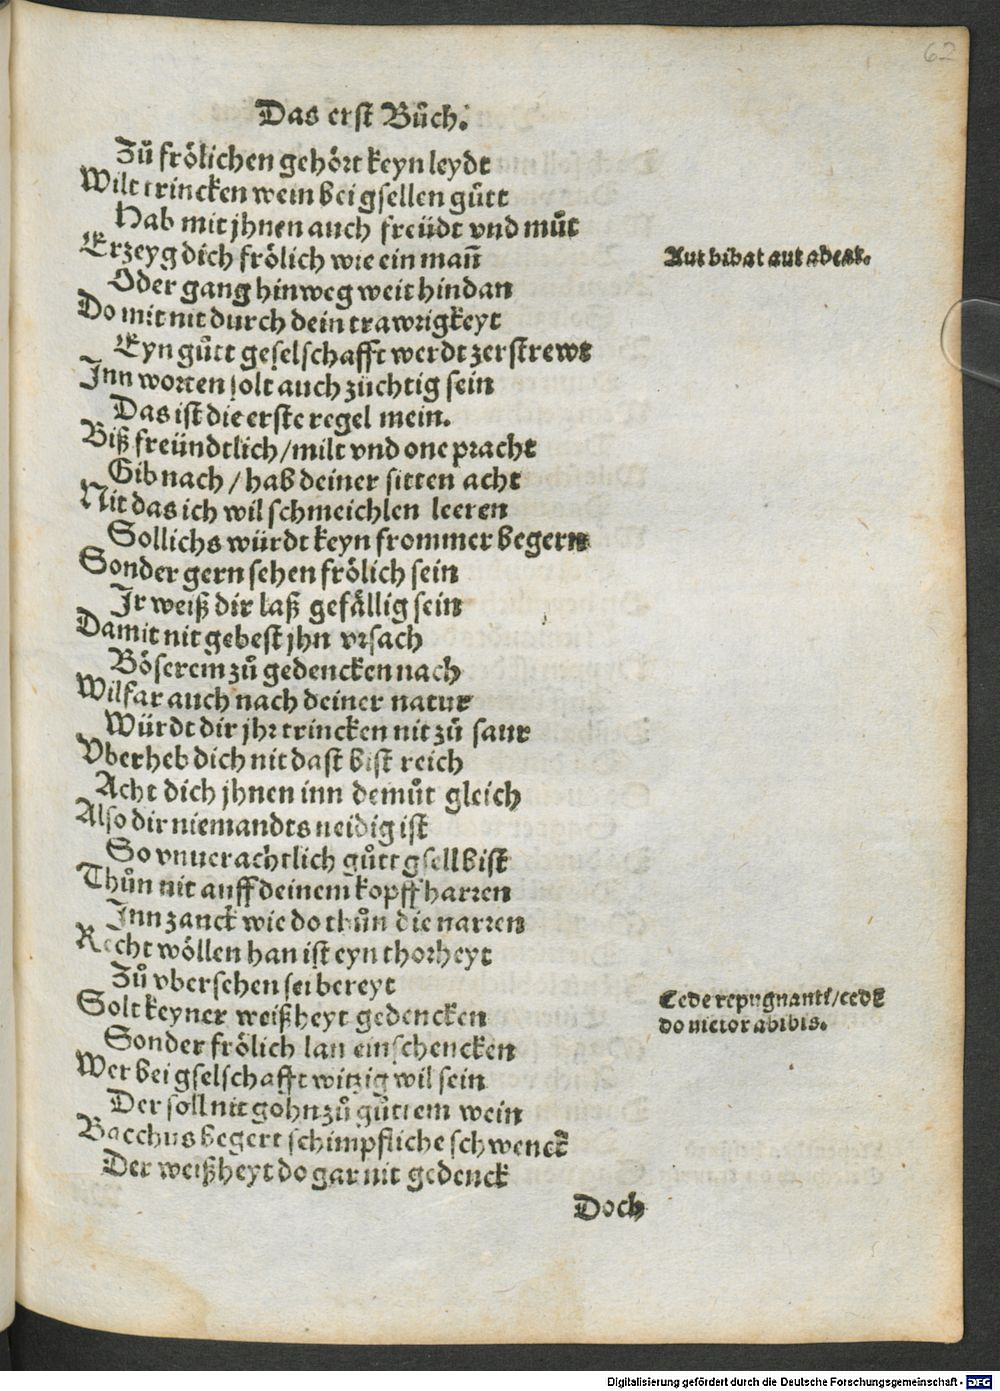 62
Das erst Bůch.
Zů frölichen gehört keyn leydt
Wilt trincken wein bei gsellen gůtt
Hab mit jhnen auch freüdt vnd můt
Erzeyg dich frölich wie ein mañ
Aut bibat aut abeat.
Oder gang hinweg weit hindan
Do mit nit durch dein trawrigkeyt
Eyn gůtt geselschafft werdt zerstrewt
Inn worten solt auch züchtig sein
Das ist die erste regel mein.
Biß freündtlich/milt vnd one pracht
Gib nach/hab deiner sitten acht
Nit das ich wil schmeichlen leeren
Sollichs würdt keyn frommer begern
Sonder gern sehen frölich sein
Ir weiß dir laß gefällig sein
Damit nit gebest jhn vrsach
Böserem zů gedencken nach
Wilfar auch nach deiner natur
Würdt dir jhr trincken nit zů saur
Vberheb dich nit dast bist reich
Acht dich jhnen inn demůt gleich
Also dir niemandts neidig ist
So vnuerachtlich gůtt gsell bist
Thůn nit auff deinem kopff harren
Inn zanck wie do thůn die narren
Recht wöllen han ist eyn thorheyt
Zů vbersehen sei bereyt
Solt keyner weißheyt gedencken
Cede repugnanti/cedẽ
do victor abibis.
Sonder frölich lan einschencken
Wer bei gselschafft witzig wil sein
Der soll nit gohn zů gůttem wein
Bacchus begert schimpfliche schwenck
Der weißheyt do gar nit gedenck
Doch
Digitalisierung gefördert durch die Deutsche Forschungsgemeinschaft - DFG